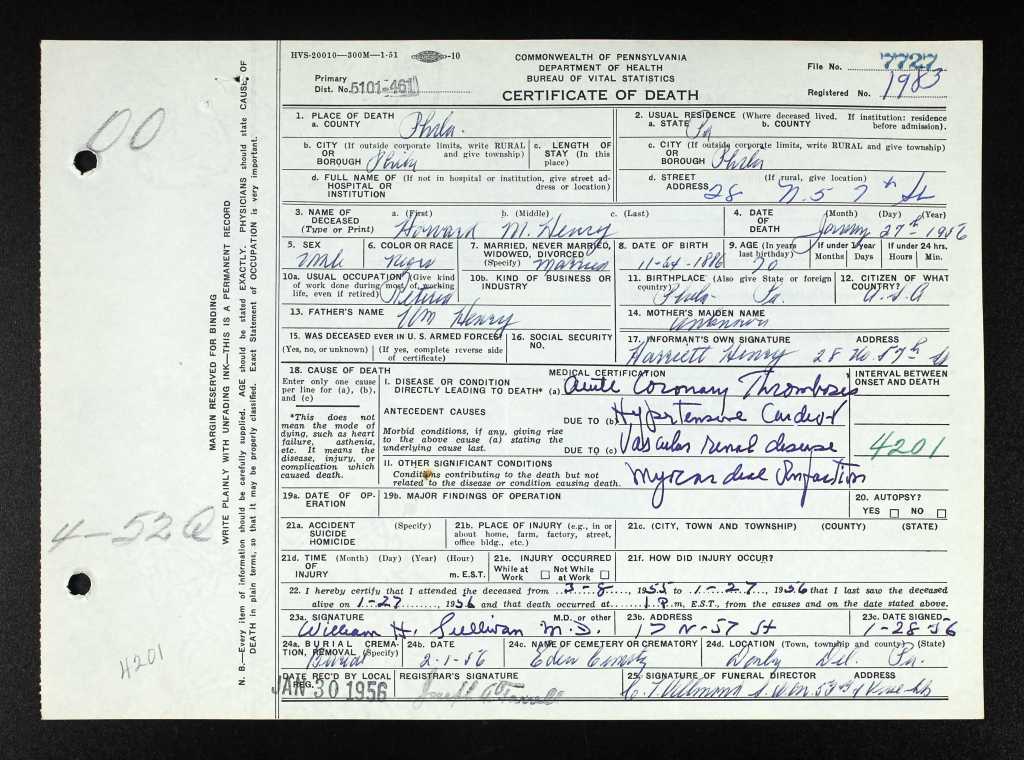 HVS-20010—300M—1-51 -10
COMMONWEALTH OF PENNSYLVANIA
DEPARTMENT OF HEALTH
BUREAU OF VITAL STATISTICS
CERTIFICATE OF DEATH
Primary
Dist. No. 5101-461
File No. 7727
Registered No. 1983
1. PLACE OF DEATH
a. COUNTY Phila.
b. CITY (If outside corporate limits, write RURAL
OR and give township)
BOROUGH Phila
c. LENGTH OF
STAY (In this
place)
d. FULL NAME OF (If not in hospital or institution, give street ad-
HOSPITAL OR dress or location)
INSTITUTION
2. USUAL RESIDENCE (Where deceased lived. If institution: residence
a. STATE Pa b. COUNTY before admission).
c. CITY (If outside corporate limits, write RURAL and give township)
OR
BOROUGH Phila
d. STREET (If rural, give location)
ADDRESS 28 N. 57th St
3. NAME OF a. (First) b. (Middle) c. (Last)
DECEASED
(Type or Print) Howard M. Henry
4. DATE (Month) (Day) (Year)
OF
DEATH January 27th 1956
5. SEX
Male
6. COLOR OR RACE
Negro
7. MARRIED, NEVER MARRIED,
WIDOWED, DIVORCED
(Specify) Married
8. DATE OF BIRTH
9. AGE (In years
last birthday)
70
If under 1 year
Months Days
If under 24 hrs.
Hours Min.
10a. USUAL OCCUPATION (Give kind
of work done during most of working
life, even if retired) Retired
10b. KIND OF BUSINESS OR
INDUSTRY
11. BIRTHPLACE (Also give State or foreign
country)
Phila- Pa.
12. CITIZEN OF WHAT
COUNTRY?
U.S.A
13. FATHER'S NAME
Wm Henry
14. MOTHER'S MAIDEN NAME
Unknown
15. WAS DECEASED EVER IN U. S. ARMED FORCES?
(Yes, no, or unknown) (If yes, complete reverse side
of certificate)
16. SOCIAL SECURITY
NO.
17. INFORMANT'S OWN SIGNATURE ADDRESS
Harriett Henry 28 No. 57th St
18. CAUSE OF DEATH
Enter only one cause
per line for (a), (b),
and (c)
*This does not
mean the mode of
dying, such as heart
failure, asthenia,
etc. It means the
disease, injury, or
complication which
caused death.
MEDICAL CERTIFICATION
I. DISEASE OR CONDITION
DIRECTLY LEADING TO DEATH* (a) Acute Coronary Thrombosis
ANTECEDENT CAUSES
DUE TO (b) Hypertensive Cardio
Morbid conditions, if any, giving rise
to the above cause (a) stating the
underlying cause last.
DUE TO (c) Vascular renal disease
II. OTHER SIGNIFICANT CONDITIONS
Conditions contributing to the death but not
related to the disease or condition causing death.
Myocardial Infarction
INTERVAL BETWEEN
ONSET AND DEATH
4201
19a. DATE OF OP-
ERATION
19b. MAJOR FINDINGS OF OPERATION
20. AUTOPSY?
YES NO
21a. ACCIDENT (Specify)
SUICIDE
HOMICIDE
21b. PLACE OF INJURY (e.g., in or
about home, farm, factory, street,
office bldg., etc.)
21c. (CITY, TOWN AND TOWNSHIP) (COUNTY) (STATE)
21d. TIME (Month) (Day) (Year) (Hour)
OF
INJURY m. E.S.T.
21e. INJURY OCCURRED
While at Not While
Work at Work
21f. HOW DID INJURY OCCUR?
22. I hereby certify that I attended the deceased from 3-8, 1955 to 1-27, 1956 that I last saw the deceased
alive on 1-27, 1956 and that death occurred at 1 P.m, E.S.T., from the causes and on the date stated above.
23a. SIGNATURE M.D. or other
William H. Sullivan M.D.
23b. ADDRESS
17 N-57 St
23c. DATE SIGNED
1-28-56
24a. BURIAL CREMA-
TION, REMOVAL (Specify)
Burial
24b. DATE
2-1-56
24c. NAME OF CEMETERY OR CREMATORY
Eden Cemetery
24d. LOCATION (Town, township and county) (State)
Darby Del. Pa.
DATE REC'D BY LOCAL
REG.
JAN 30 1956
REGISTRAR'S SIGNATURE
25. SIGNATURE OF FUNERAL DIRECTOR ADDRESS
MARGIN RESERVED FOR BINDING
WRITE PLAINLY WITH UNFADING INK—THIS IS A PERMANENT RECORD
N. B.—Every item of information should be carefully supplied. AGE should be stated EXACTLY. PHYSICIANS should state CAUSE OF
DEATH in plain terms, so that it may be properly classified. Exact Statement of OCCUPATION is very important.
00
4-52Q
4201